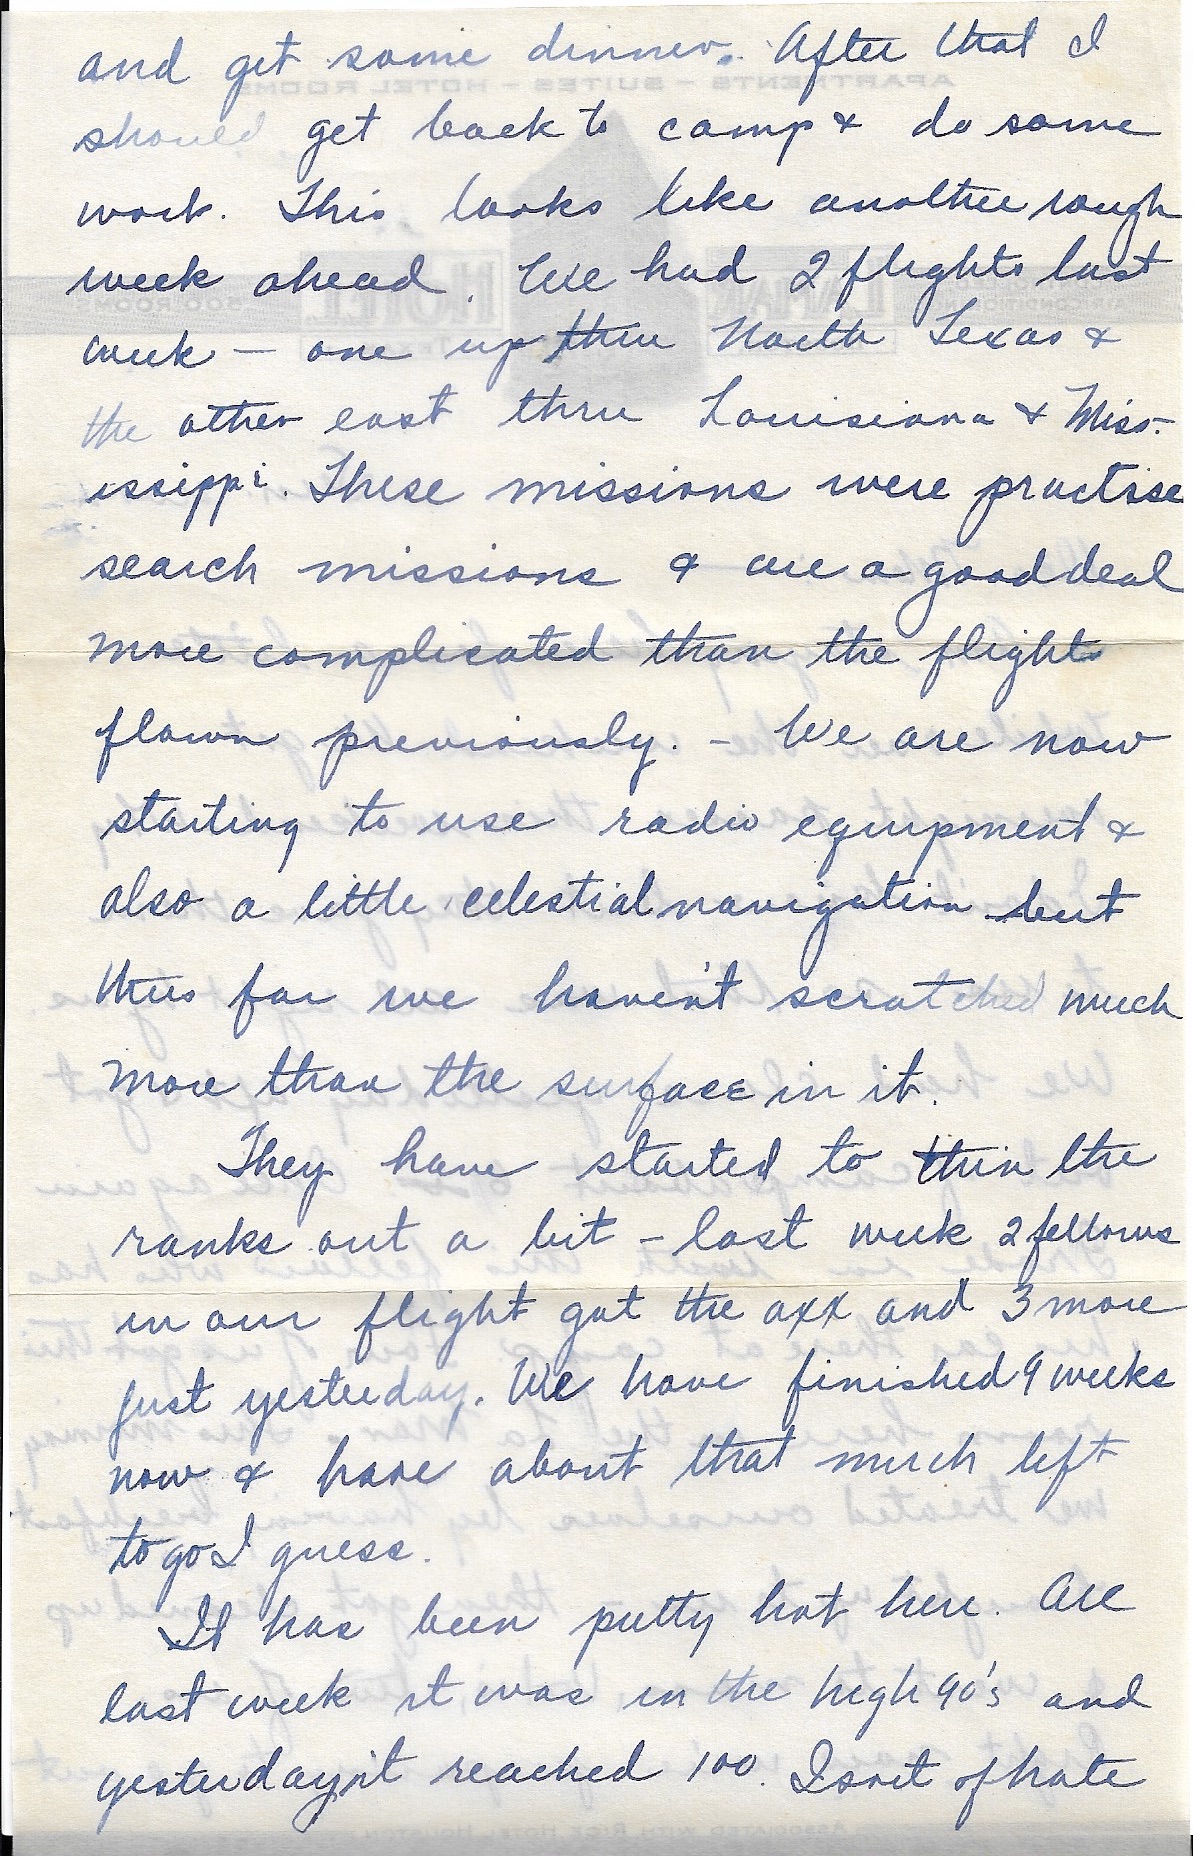 and get some dinner. After that I
should get back to camp & do some
work. This looks like another rough
week ahead. We had 2 flights last
week - one up thru North Texas &
the other east thru Louisiana & Miss-
issippi. These missions were practise
search missions & are a good deal
more complicated than the flights
flown previously. - We are now
starting to use radio equipment &
also a little celestial navigation but
thus far we haven't scratched much
more than the surface in it.
They have started to thin the
ranks out a bit - last week 2 fellows
in our flight got the axx and 3 more
just yesterday. We have finished 9 weeks
now & have about that much left
to go I guess.
It has been putty hot here. All
last week it was in the high 90's and
yesterday it reached 100. I sort of hate